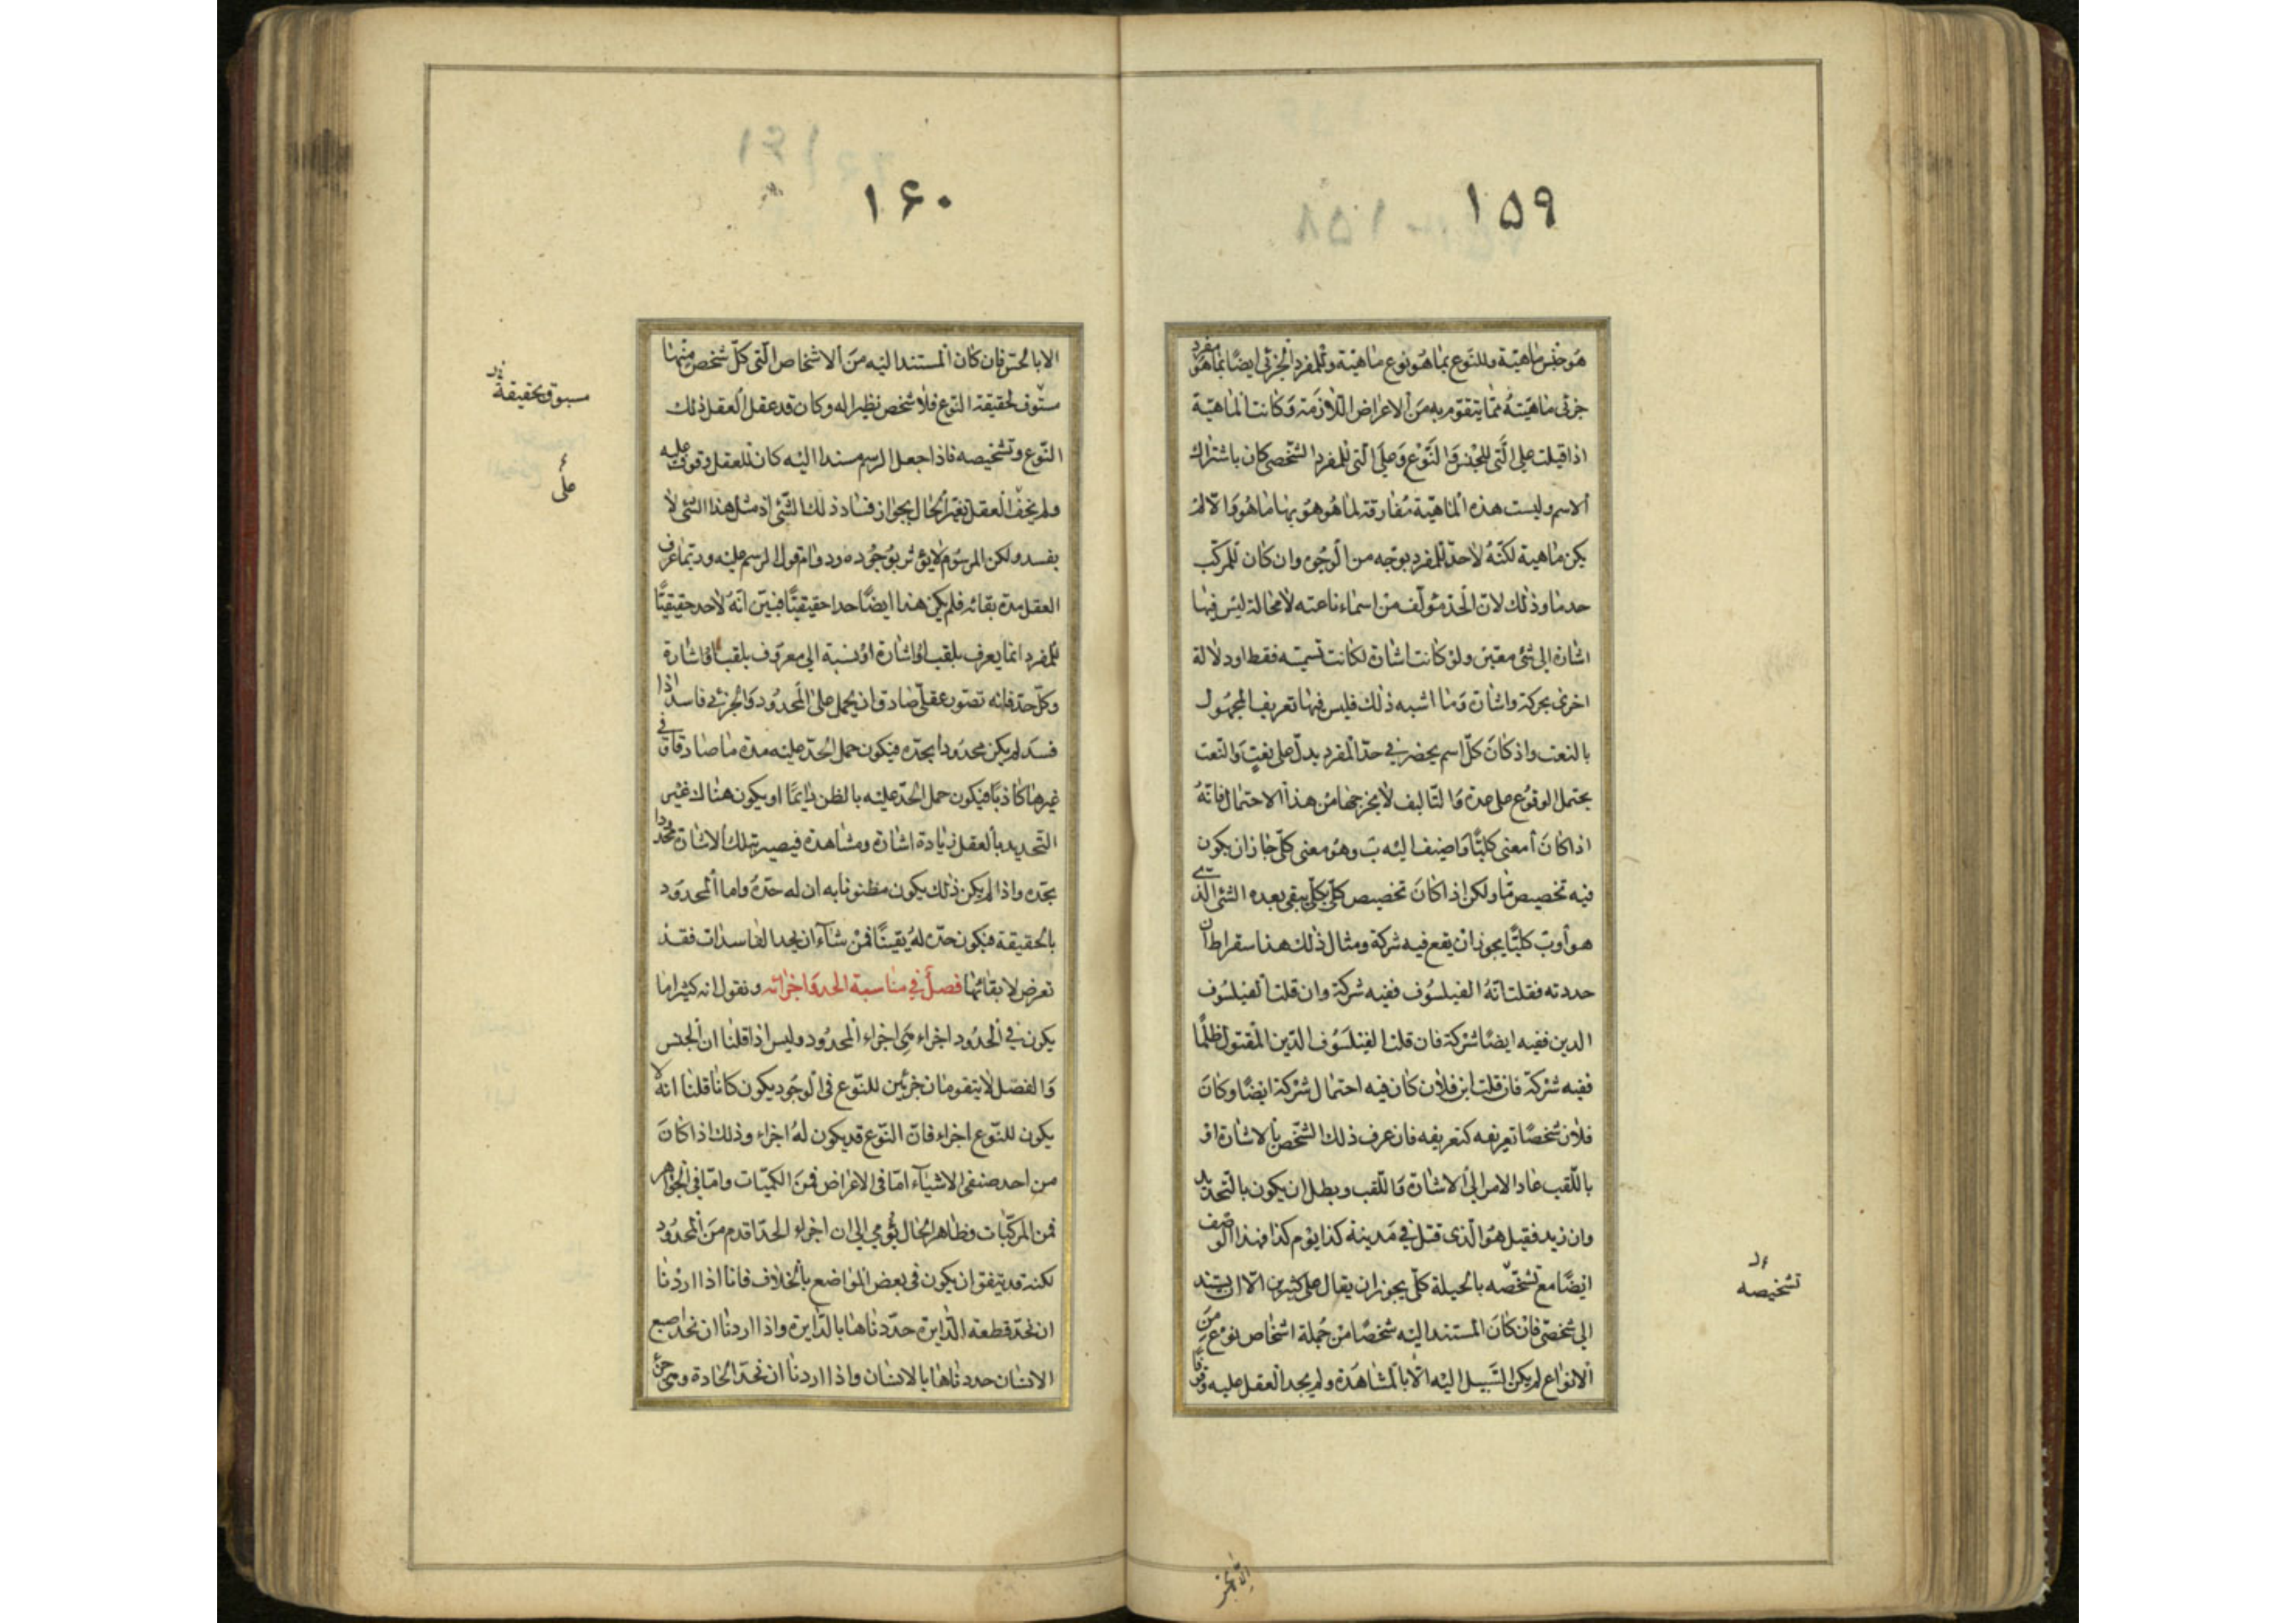 ١٥٩
هو جنس ماهية وللنوع بما هو نوع ماهية وللمفرد الجزئى ايضًا بما هو مفرد
جزئى ماهيته مما يتقوم به من الاعراض اللازمة وكانت الماهية
اذا قيلت على التى للجنس والنوع وعلى التى للمفرد الشخصى كان باشتراك
الاسم وليست هذه الماهية مفارقة لما هو هو بها ما هو والا لم
يكن ماهية لكنه لا حد للمفرد بوجه من الوجوه وان كان للمركب
حد ما وذلك لان الحد مؤلف من اسماء ناعته لا محالة ليس فيها
اشارة الى شئ معين ولو كانت اشارة لكانت تسمية فقط او دلالة
اخرى بحركة واشارة وما اشبه ذلك فليس فيها تعريف المجهول
بالنعت واذ كان كل اسم يحضر فى حد المفرد يدل على نعت والنعت
يحتمل الوقوع على عدة والتاليف لا يخرجها من هذا الاحتمال فانه
اذا كان أ معنى كليًا واضيف اليه ب وهو معنى كلى جاز ان يكون
فيه تخصيص ما ولكن اذا كان تخصيص كلى بكلى يبقى بعده الشئ الذى
هو أ وب كليًا يجوز ان يقع فيه شركة ومثال ذلك هذا سقراط ان
حددته فقلت انه الفيلسوف ففيه شركة وان قلت الفيلسوف
الدين ففيه ايضًا شركة فان قلت الفيلسوف الدين المقتول ظلمًا
ففيه شركة فان قلت ابن فلان كان فيه احتمال شركة ايضًا وكان
فلان شخصًا تعريفه كتعريفه فان عرف ذلك الشخص بالاشارة او
باللقب عاد الامر الى الاشارة واللقب وبطل ان يكون بالتحديد
وان زيد فقيل هو الذى قتل فى مدينة كذا يوم كذا فهذا الوصف
ايضًا مع تشخصه بالحيلة كلى يجوز ان يقال على كثيرين الا ان يستند
الى شخصى فان كان المستند اليه شخصًا من جملة اشخاص نوع من
الانواع لم يكن السبيل اليه الا بالمشاهدة ولم يجد العقل عليه وقوفًا
تشخيصه
١۶٠
الا بالحس فان كان المستند اليه من الاشخاص التى كل شخص منها
مستوف لحقيقة النوع فلا شخص نظيرا له وكان قد عقل العقل ذلك
النوع وتشخيصه فاذا جعل الرسم مسندا اليه كان للعقل وقوف عليه
ولم يخف العقل تغير الحال بجواز فساد ذلك الشئ اذ مثل هذا الشئ لا
يفسد ولكن المرسوم لا يوثر بوجوده ودوام قول الرسم عليه وربما عرف
العقل مدة بقائه فلم يكن هذا ايضًا حدا حقيقيًا فبين انه لا حد حقيقيًا
للمفرد انما يعرف بلقب او اشارة او نسبة الى معروف بلقب او اشارة
وكل حد فانه تصور عقلى صادق ان يحمل على المحدود والجزئى فاسد اذا
فسد لم يكن محدودا بحده فيكون حمل الحد عليه مدة ما صادقا فى
غيرها كاذبًا فيكون حمل الحد عليه بالظن دايمًا او يكون هناك غير
التحديد بالعقل زيادة اشارة ومشاهدة فيصير بتلك الاشارة محدودا
بحده واذا لم يكن ذلك يكون مظنونا به ان له حده واما المحدود
بالحقيقة فيكون حده له يقينًا فمن شاء ان يحد الفاسدات فقد
تعرض لابقائها فصل فى مناسبة الحد واجزائه ونقول انه كثيرا ما
يكون فى الحدود اجزاء هى اجزاء المحدود وليس اذا قلنا ان الجنس
والفصل لا يتقومان جزئين للنوع فى الوجود يكون كانا قلنا انه لا
يكون للنوع اجزاء فان النوع قد يكون له اجزاء وذلك اذا كان
من احد صنفى الاشياء اما فى الاعراض فمن الكميات واما فى الجواهر
فمن المركبات وظاهر الحال يؤمي الى ان اجزاء الحد اقدم من المحدود
لكنه قد يتفق ان يكون فى بعض المواضع بالخلاف فانا اذا اردنا
ان نحد قطعة الدايرة حددناها بالدايرة واذا اردنا ان نحد اصبع
الانسان حددناها بالانسان واذا اردنا ان نحد الحادة وهى جزء
على